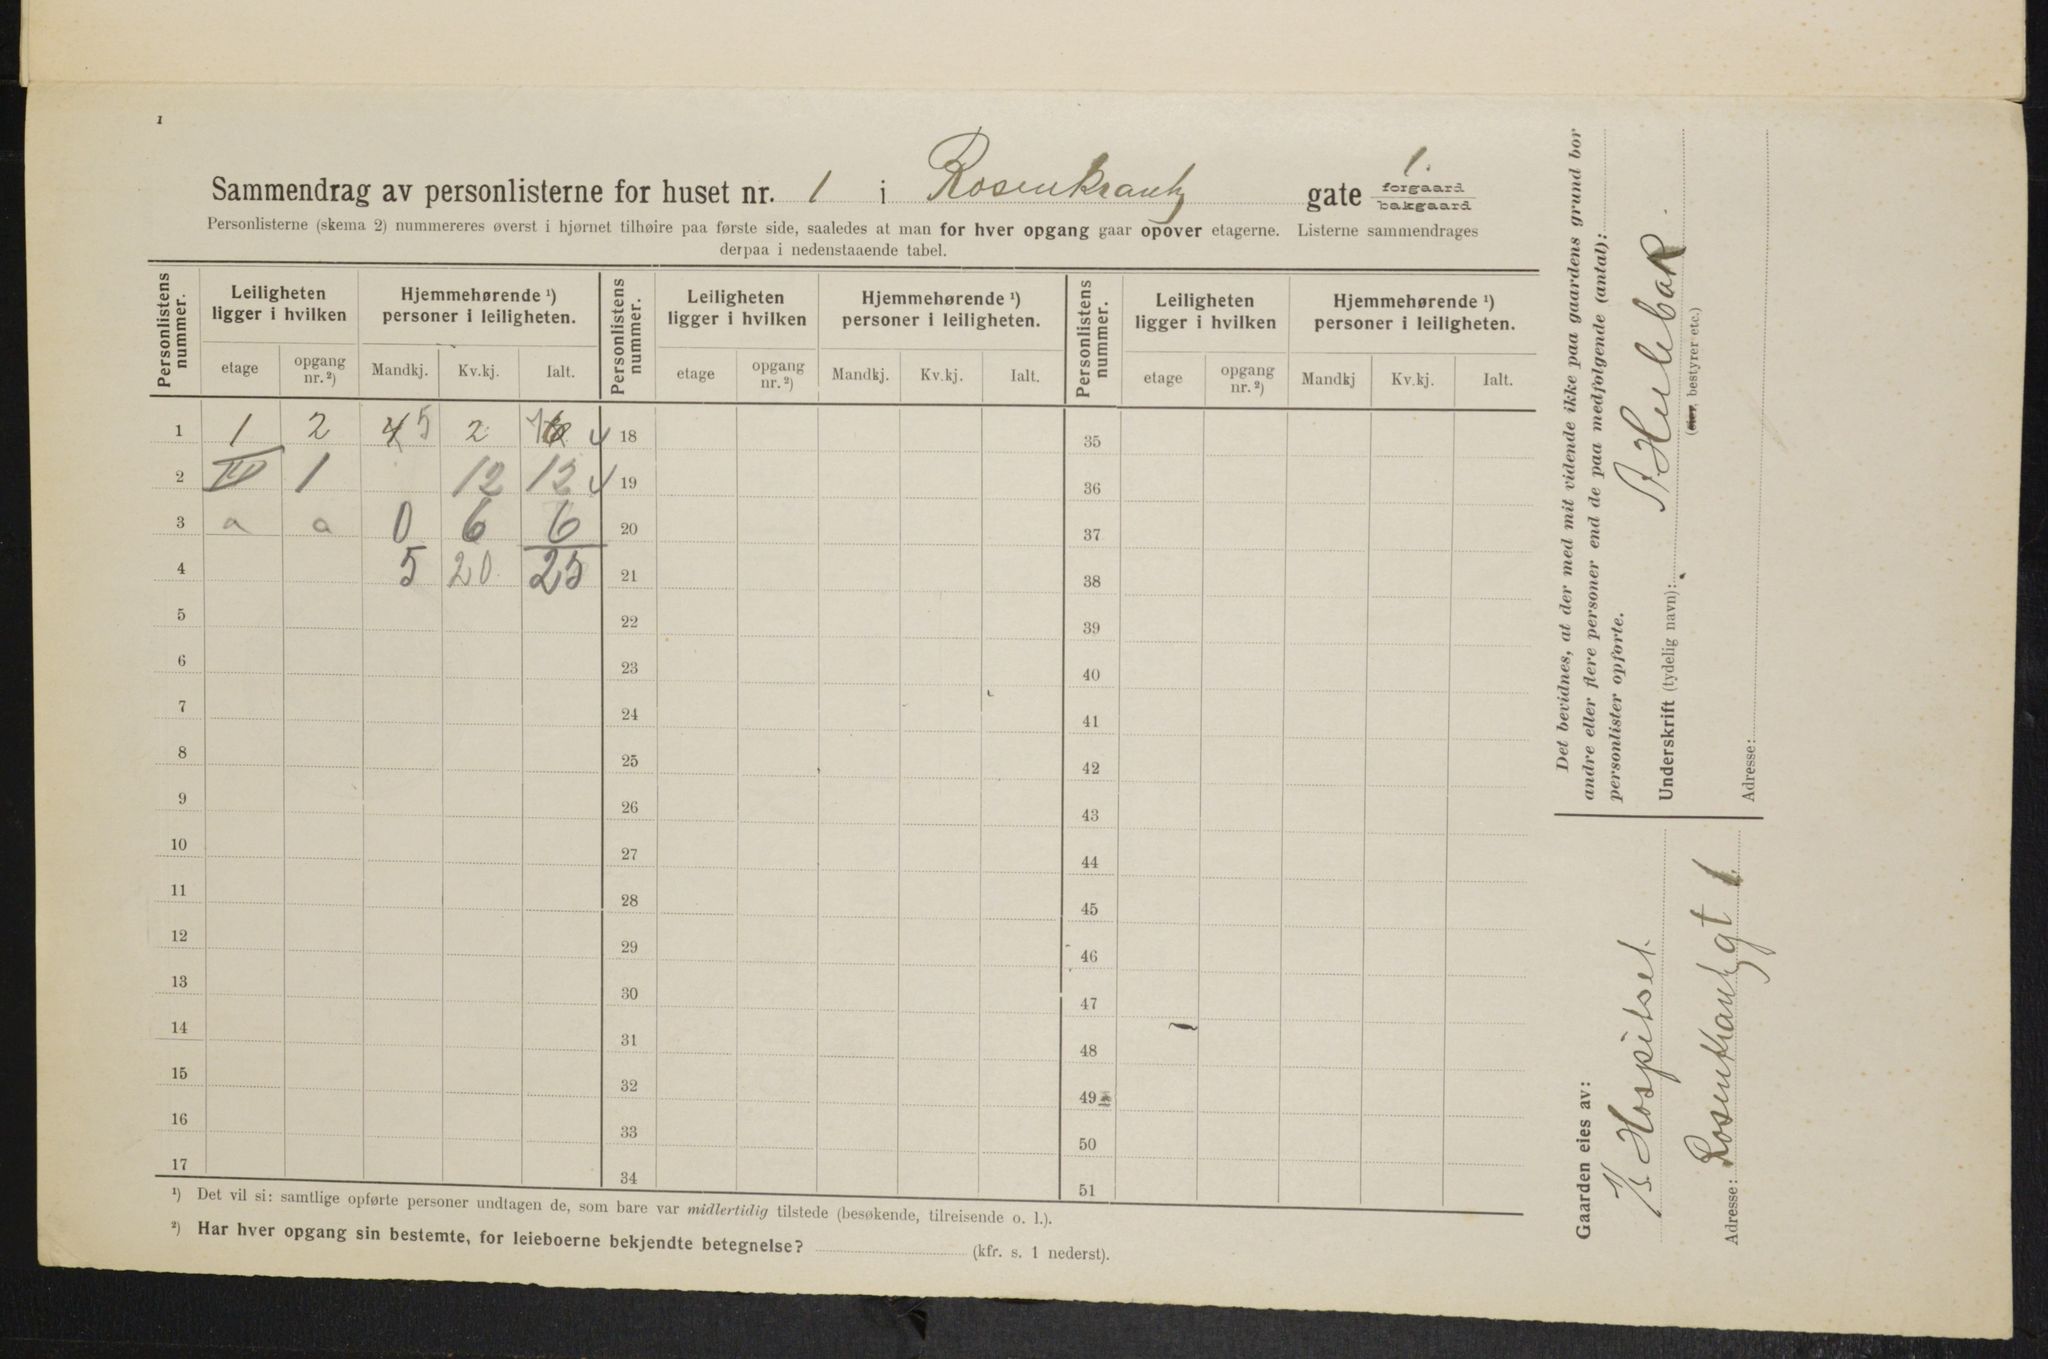 1
Sammendrag av personlisterne for huset nr. 1 i Rosenkrantz gate 1. forgaard bakgaard
Personlisterne (skema 2) nummereres øverst i hjørnet tilhøire paa første side, saaledes at man for hver opgang gaar opover etagerne. Listerne sammendrages
derpaa i nedenstaaende tabel.
Personlistens nummer. Leiligheten ligger i hvilken Hjemmehørende ¹) personer i leiligheten. Personlistens nummer. Leiligheten ligger i hvilken Hjemmehørende ¹) personer i leiligheten. Personlistens nummer. Leiligheten ligger i hvilken Hjemmehørende ¹) personer i leiligheten.
etage opgang nr. ²) Mandkj. Kv.kj. Ialt. etage opgang nr. ²) Mandkj. Kv.kj. Ialt. etage opgang nr. ²) Mandkj Kv.kj. Ialt.
1 1 2 4 5 2 6 18 35
2 IV 1 12 12 19 36
3 a a 0 6 6 20 37
4 5 20 25 21 38
5 22 39
6 23 40
7 24 41
8 25 42
9 26 43
10 27 44
11 28 45
12 29 46
13 30 47
14 31 48
15 32 49
16 33 50
17 34 51
¹) Det vil si: samtlige opførte personer undtagen de, som bare var midlertidig tilstede (besøkende, tilreisende o. l.).
²) Har hver opgang sin bestemte, for leieboerne bekjendte betegnelse? (kfr. s. 1 nederst).
Det bevidnes, at der med mit vidende ikke paa gaardens grund bor
andre eller flere personer end de paa medfølgende (antal):
personlister opførte.
Underskrift (tydelig navn): Hulbak.
(eier, bestyrer etc.)
Adresse:
Gaarden eies av:
Hospitset.
Adresse: Rosenkrantzgt 1